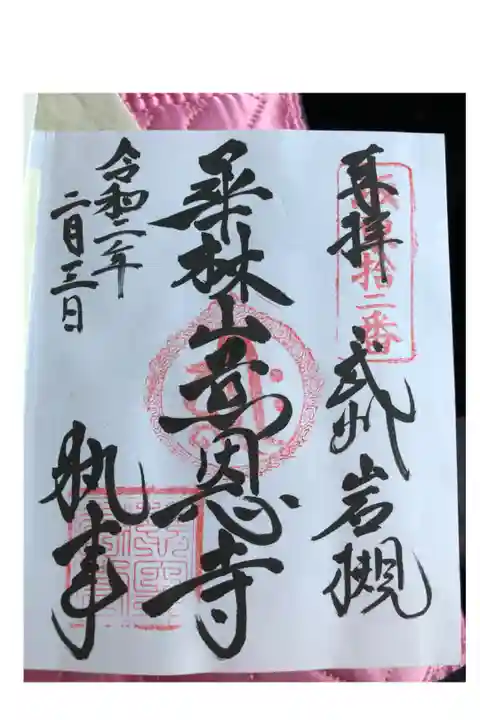 坂東拾二番
奉拝 武州 岩槻
華林山慈恩寺
令和二年
二月三日
執事